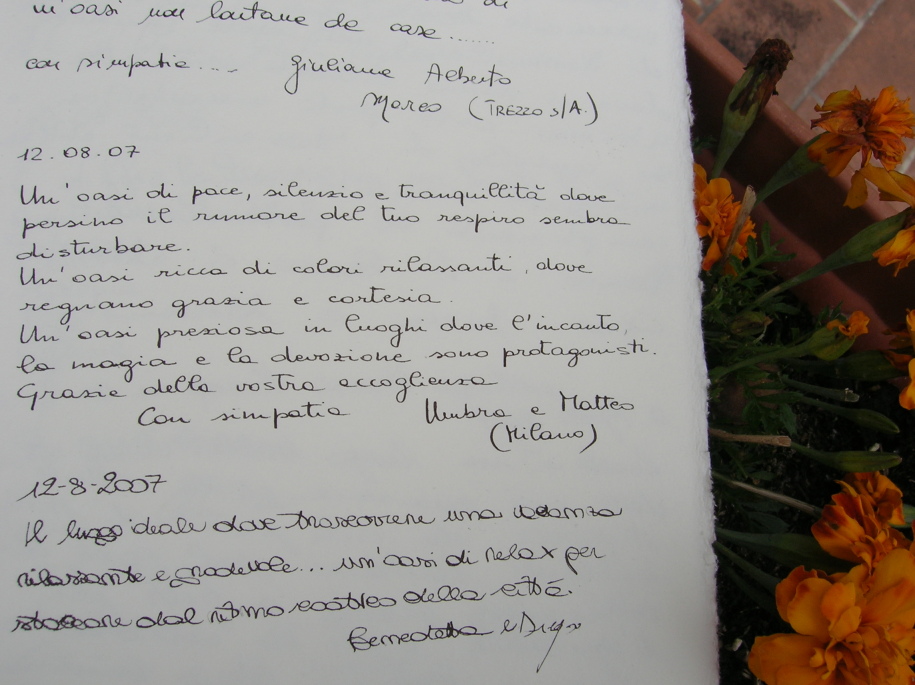 un'oasi non lontana da casa.......
con simpatia.... Giuliana Alberto
Moreo (TREZZO s/A.)
12.08.07
Un'oasi di pace, silenzio e tranquillità dove
persino il rumore del tuo respiro sembra
disturbare.
Un'oasi ricca di colori rilassanti, dove
regnano grazia e cortesia.
Un'oasi preziosa in luoghi dove l'incanto,
la magia e la devozione sono protagonisti.
Grazie della vostra accoglienza
Con simpatia Umbra e Matteo
(Milano)
12-8-2007
Il luogo ideale dove trascorrere una vacanza
rilassante e gradevole... un'oasi di relax per
staccare dal ritmo della città.
Benedetta e